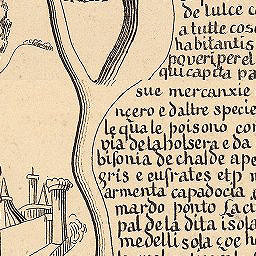 de lulce c
a tutte cose
habitantis
poveri per el
qui capita pa
sue mercanxie
nçero e daltre specie
le qual e poisono con
via de la bolsera e da
bisonia de chalde ape
gris e eusrates et p m
armenta capadocia e
mardo ponto La ci
pal de la dita isola
medelli sola çoe h